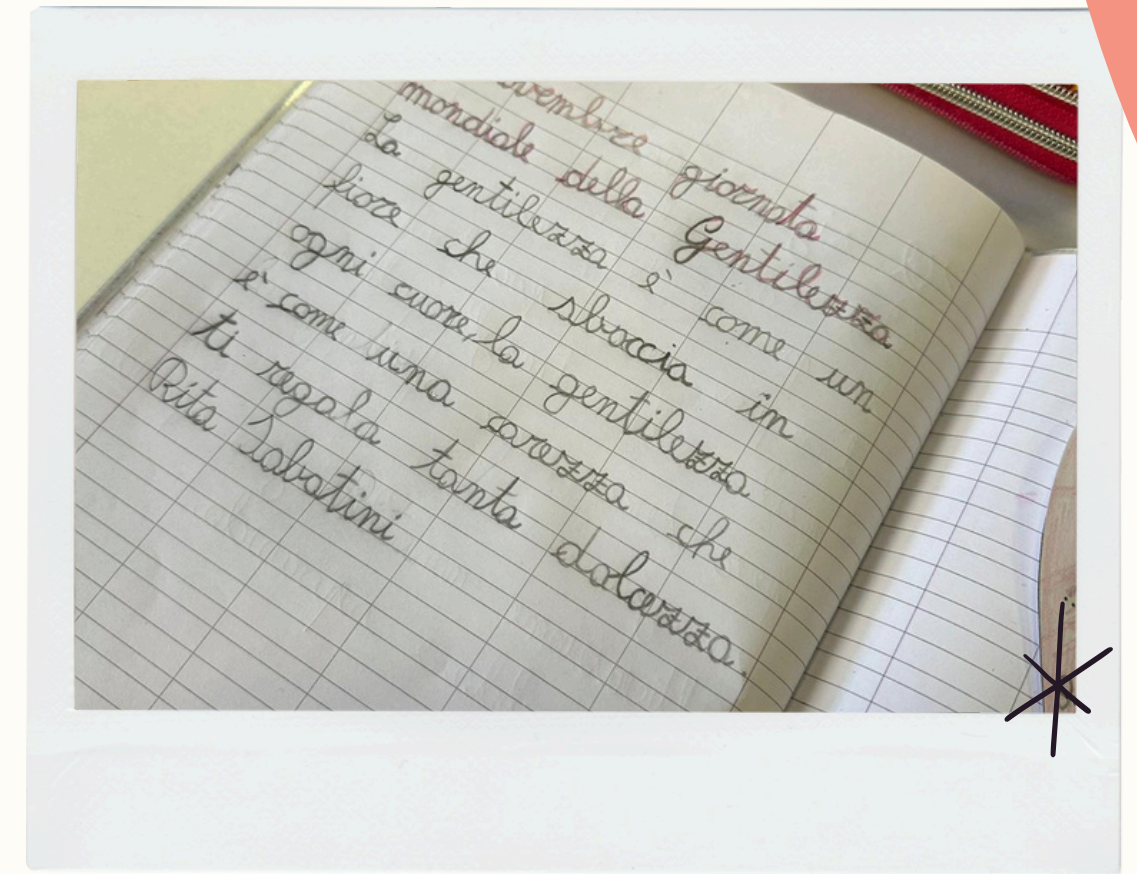 vembre giornata
mondiale della Gentilezza
La gentilezza è come un
fiore che sboccia in
ogni cuore, la gentilezza
è come una carezza che
ti regala tanta dolcezza.
Rita Sabatini